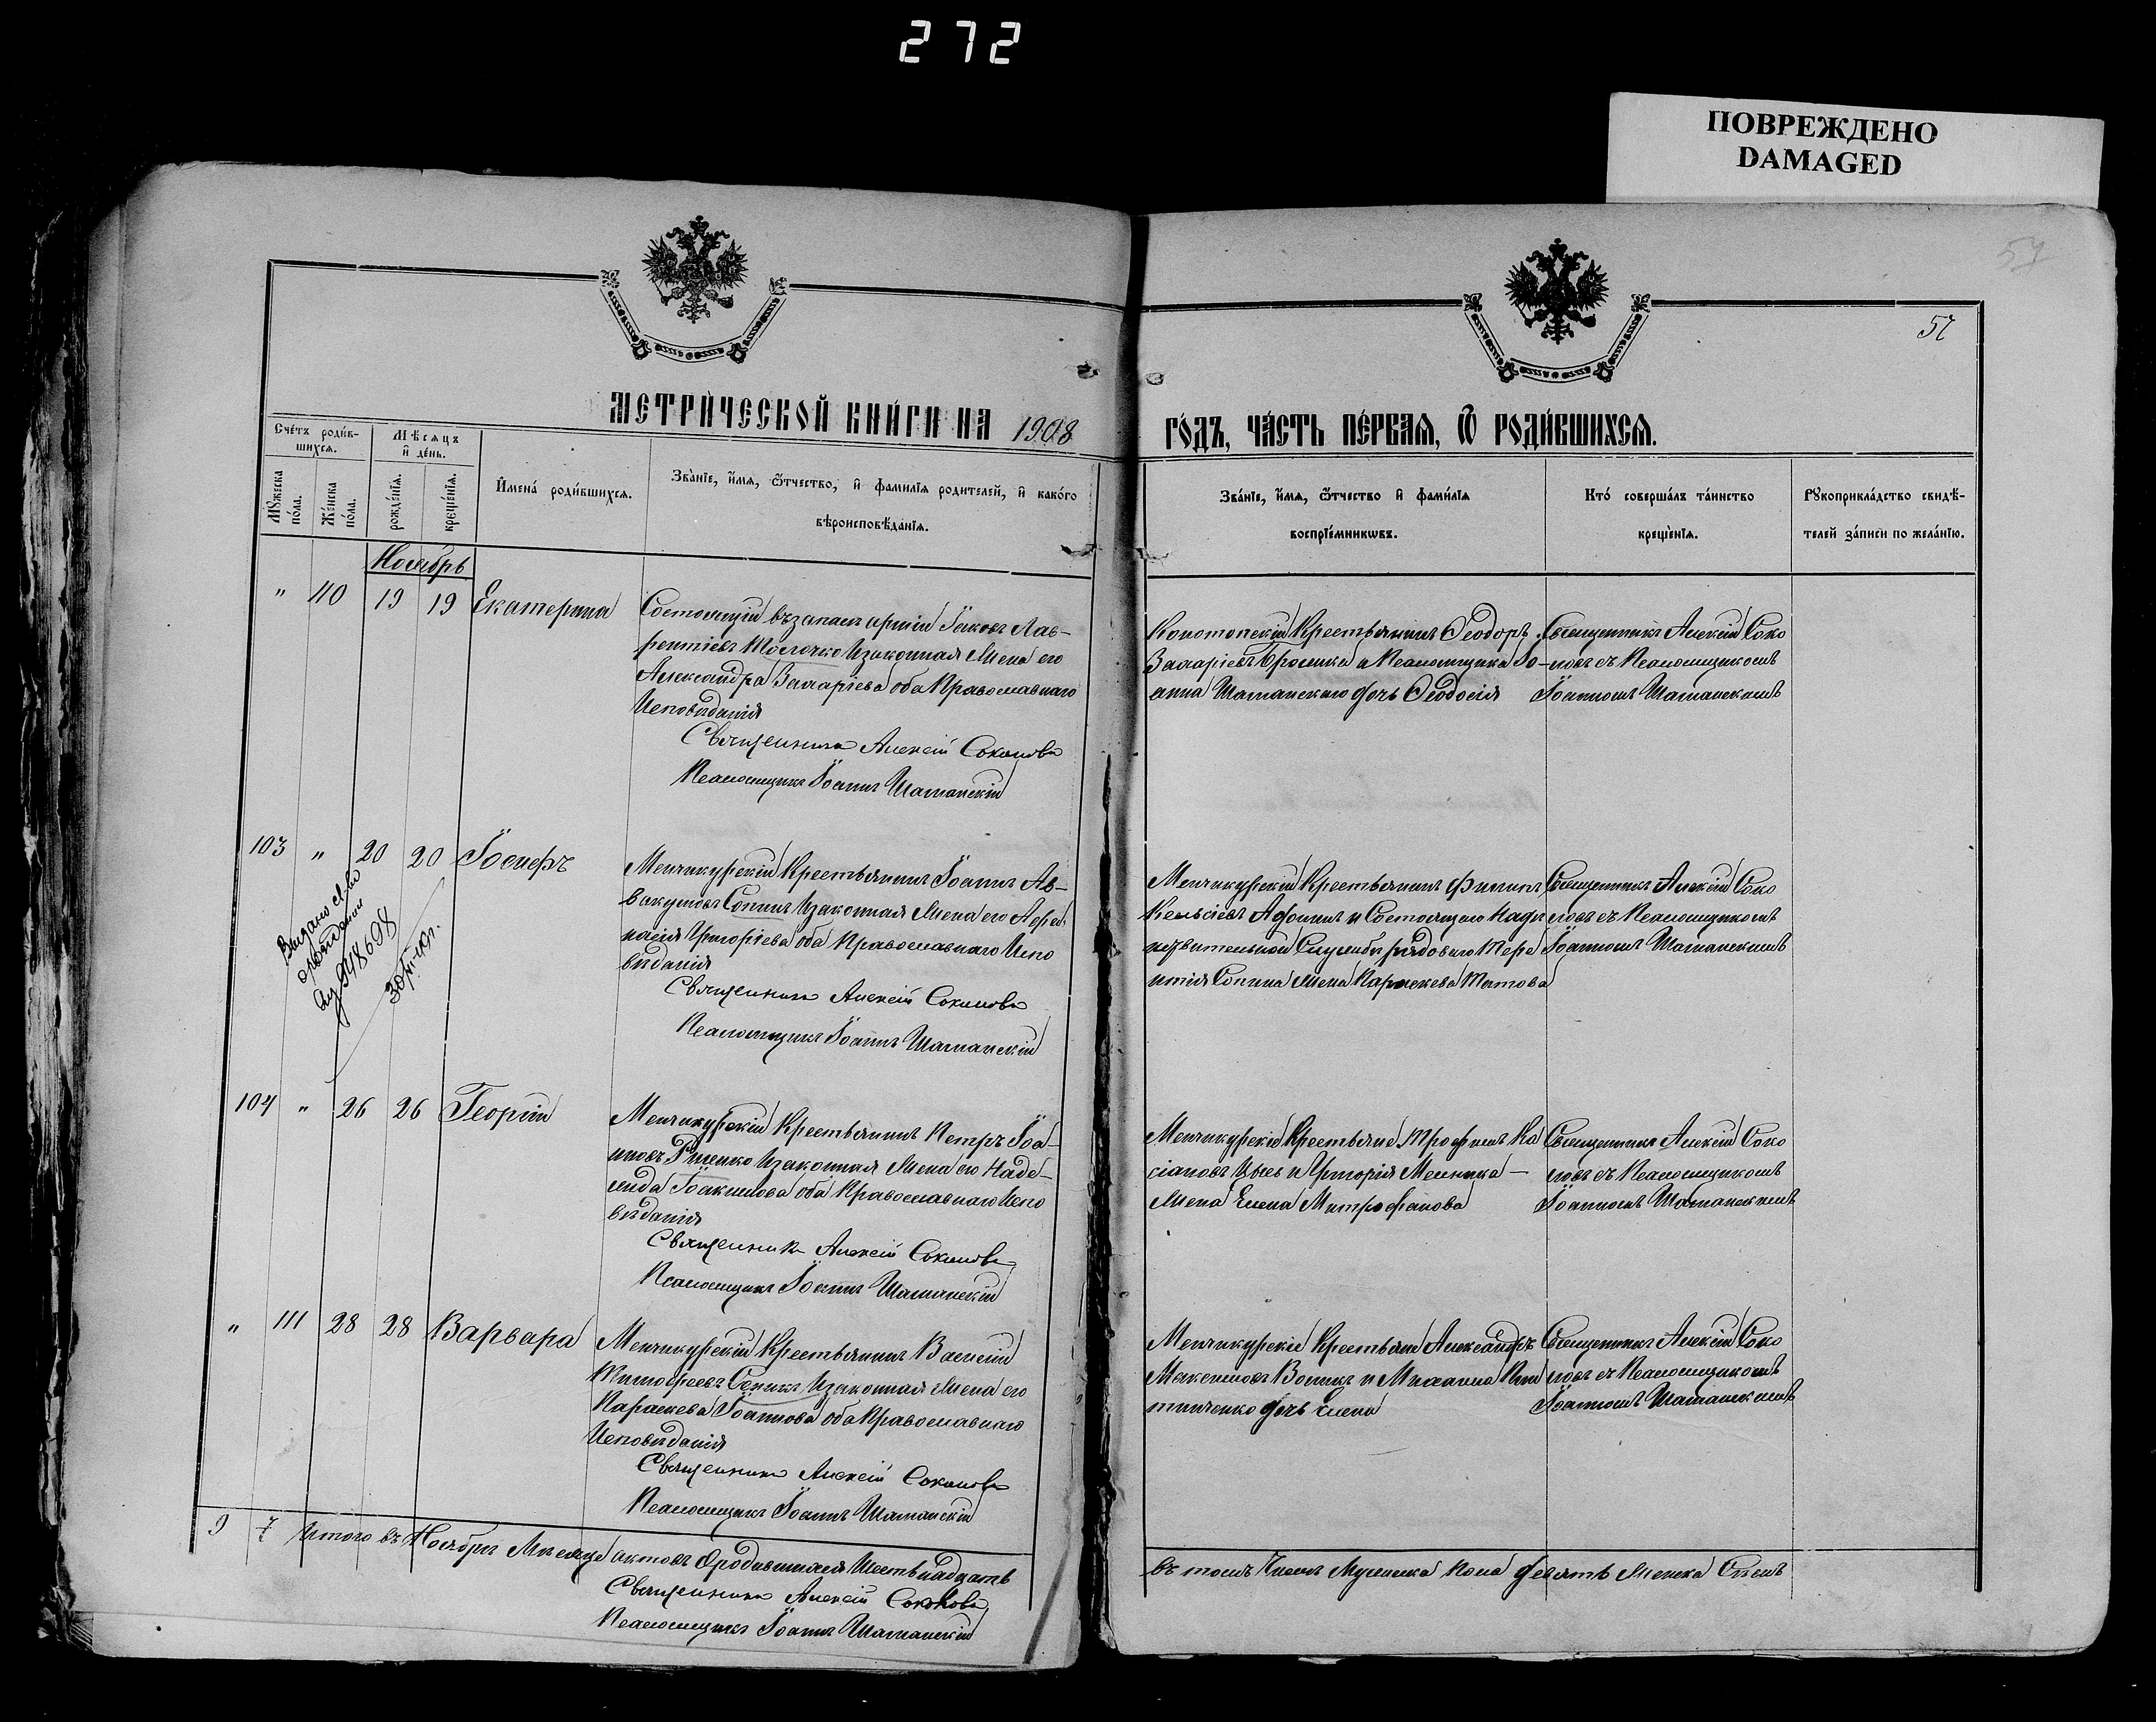 272
ПОВРЕЖДЕНО
DAMAGED
57
57
МЕТРИ́ЧЕСКОЙ КНИ́ГИ НА 1908
ГО́ДЪ, ЧА́СТЬ ПЕ́РВАЯ, Ѿ РОДИ́ВШИХСЯ.
Сче́тъ роди́в-
шихся.
Мѣ́сяцъ
и҆ де́нь.
Мꙋ́жеска
по́ла.
Же́нска
по́ла.
рожде́нїя.
креще́нїя.
И҆мена́ роди́вшихся.
Зва́нїе, и҆́мя, ѻ҆́тчество, и҆ фами́лїя родителей, и҆ како́го
вѣроисповѣ́данїя.
Зва́нїе, и҆́мя, ѻ҆́тчество и҆ фами́лїя
воспрїе́мникѡвъ.
Кто́ соверша́лъ та́инство
креще́нїя.
Рꙋкоприкла́дство свидѣ́-
телей за́писи по жела́нїю.
Ноябрь
" 110 19 19 Екатерина
Состоящій въ запасѣ арміи Іаковъ Лав-
рентіевъ Молочко и законная жена его
Александра Захаріева оба Православнаго
Исповѣданія
Священникъ Алексій Соколовъ
Псаломщикъ Іоаннъ Шаманскій
Конотопскій Крестьянинъ Ѳеодоръ
Захаріевъ Брошка и Псаломщика Іо-
анна Шаманскаго дочь Ѳеодосія
Священникъ Алексій Соко
ловъ съ Псаломщикомъ
Іоанномъ Шаманскимъ
103 " 20 20 Іосифъ
Выдано св-во
о рождении
30/VI-49г.
Менчикурскій Крестьянинъ Іоаннъ Ав-
вакумовъ Сопинъ и законная жена его Афа
насія Григоріева оба Православнаго Испо
вѣданія
Священникъ Алексій Соколовъ
Псаломщикъ Іоаннъ Шаманскій
Менчикурскій Крестьянинъ Филипъ
Кельсіевъ Афонинъ и Состоящаго на дѣ
йствительной Службѣ рядоваго Тере
нтія Сопина жена Параскева Титова
Священникъ Алексій Соко
ловъ съ Псаломщикомъ
Іоанномъ Шаманскимъ
104 " 26 26 Георгій
Менчикурскій Крестьянинъ Петръ Іоа-
нновъ и законная жена его Наде-
жда Іоакимова оба Православнаго Испо
вѣданія
Священникъ Алексій Соколовъ
Псаломщикъ Іоаннъ Шаманскій
Менчикурскіе Крестьяне Трофимъ Ка
сіановъ и Григорія Мельника
жена Елена Митрофанова
Священникъ Алексій Соко
ловъ съ Псаломщикомъ
Іоанномъ Шаманскимъ
" 111 28 28 Варвара
Менчикурскій Крестьянинъ Василій
Тимофеевъ и законная жена его
Параскева Іоаннова оба Православнаго
Исповѣданія
Священникъ Алексій Соколовъ
Псаломщикъ Іоаннъ Шаманскій
Менчикурскіе Крестьяне Александръ
Максимовъ Воликъ и Михаила
дочь Елена
Священникъ Алексій Соко
ловъ съ Псаломщикомъ
Іоанномъ Шаманскимъ
9 7 Итого въ Ноябрѣ Мѣсяцѣ актовъ о родившихся Шестнадцать
Священникъ Алексій Соколовъ
Псаломщикъ Іоаннъ Шаманскій
въ томъ числѣ Мужеска Пола девять женска Семь